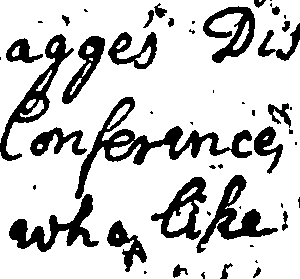 agge's Dis
Conference,
who, like